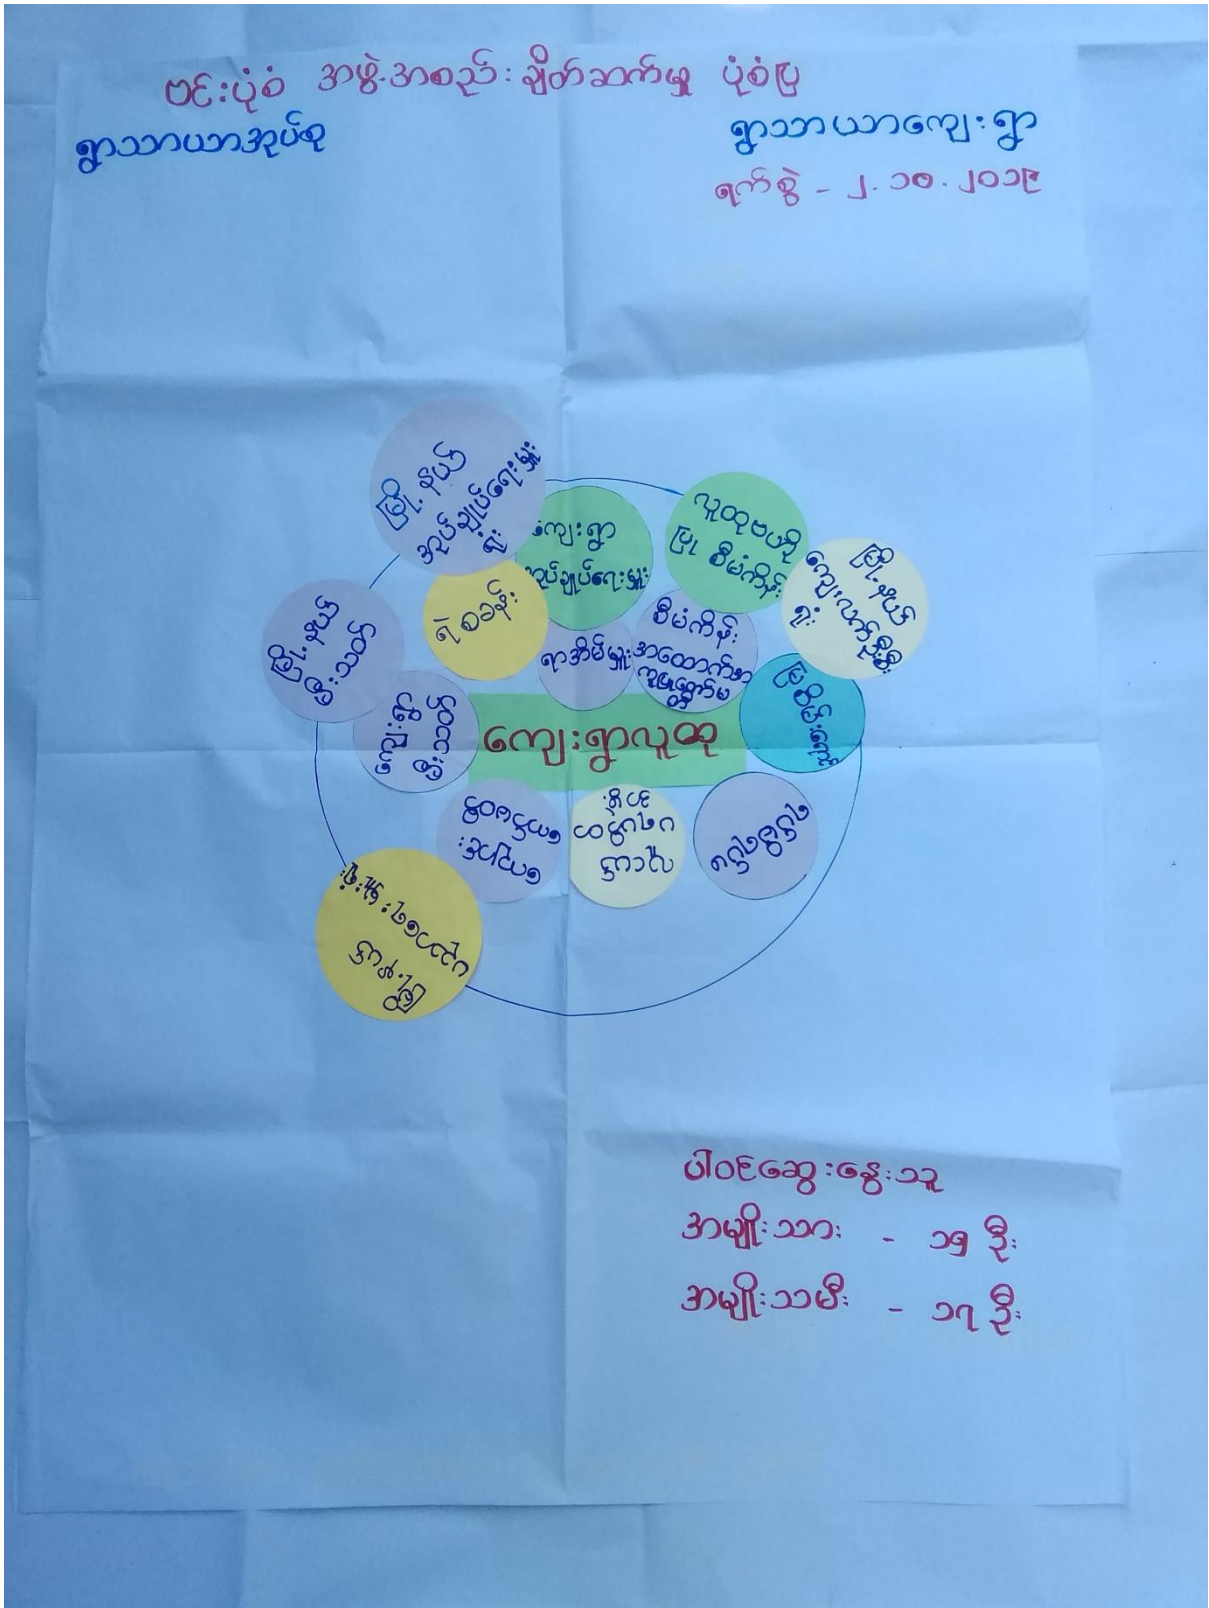 ဗင်းပုံစံ အဖွဲ့အစည်းချိတ်ဆက်မှု ပုံစံပြ
ရွာသာယာအုပ်စု
ရွာသာယာကျေးရွာ
ရက်စွဲ - ၂.၁၀.၂၀၁၉
မြို့နယ်
အုပ်ချုပ်ရေးမှူး
ရုံး
ကျေးရွာ
အုပ်ချုပ်ရေးမှူး
လူထုဗဟို
ပြု စီမံကိန်း
မြို့နယ်
ကျေးလက်
ရုံး
ရဲစခန်း
မြို့နယ်
မီးသတ်
ရာအိမ်မှူး
စီမံကိန်း
အထောက်အ
ကူပြုကော်မ
တီ
မြစိမ်းရောင်
ကျေးရွာ
မီးသတ်
ကျေးရွာလူထု
မြို့နယ်
ပါဝင်ဆွေးနွေးသူ
အမျိုးသား - ၁၅ ဦး
အမျိုးသမီး - ၁၇ ဦး